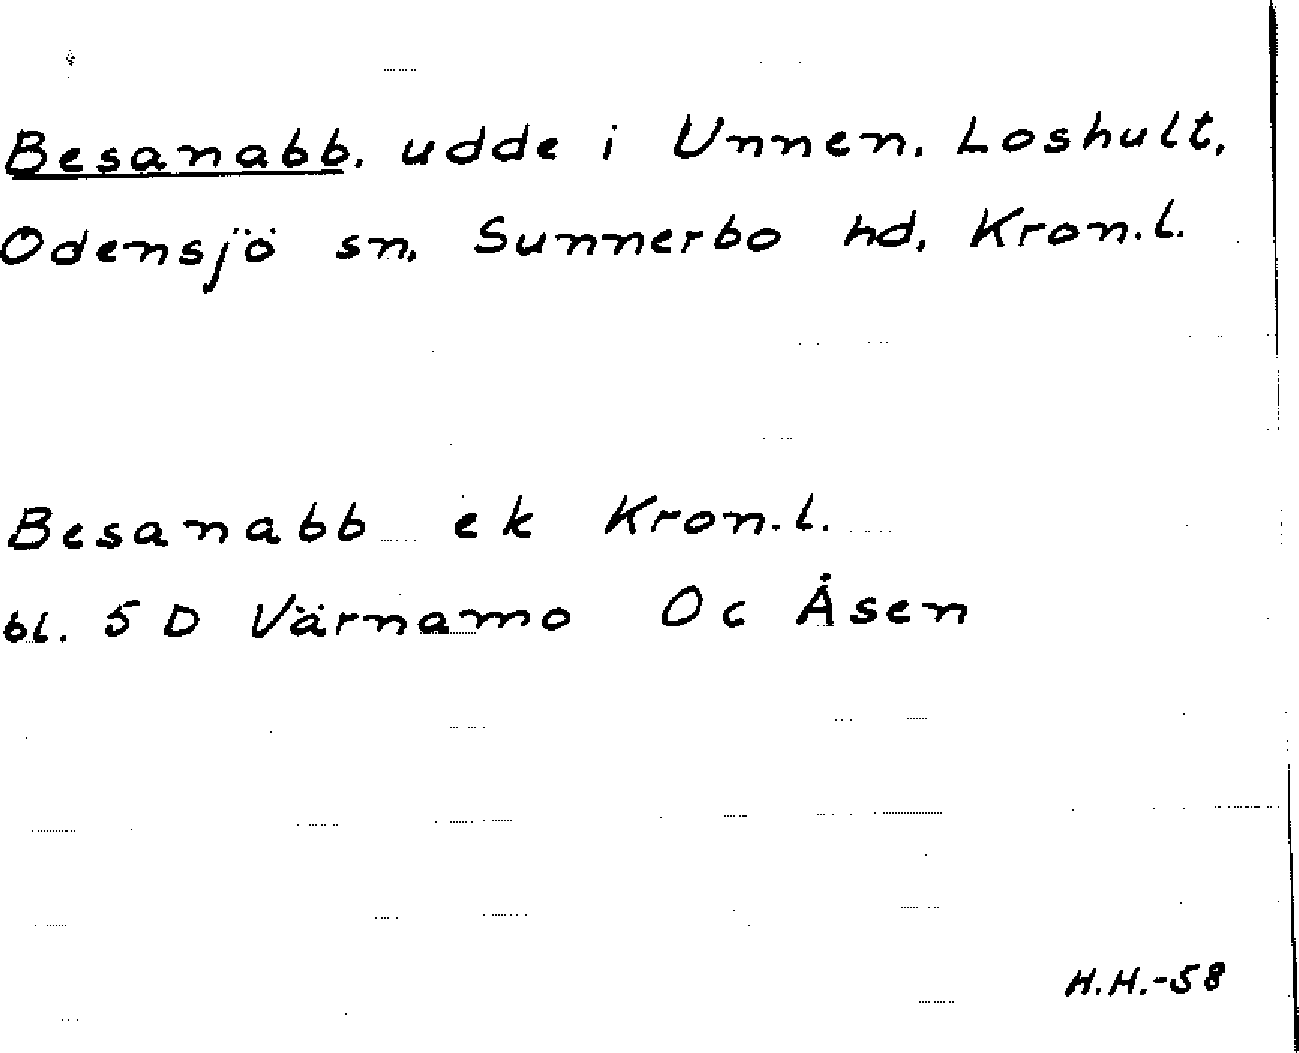 Besanabb, udde i Unnen, Loshult,
Odensjö sn, Sunnerbo hd, Kron.l.
Besanabb ek Kron.l.
bl. 5 D Värnamo Oc Åsen
H.H.-58